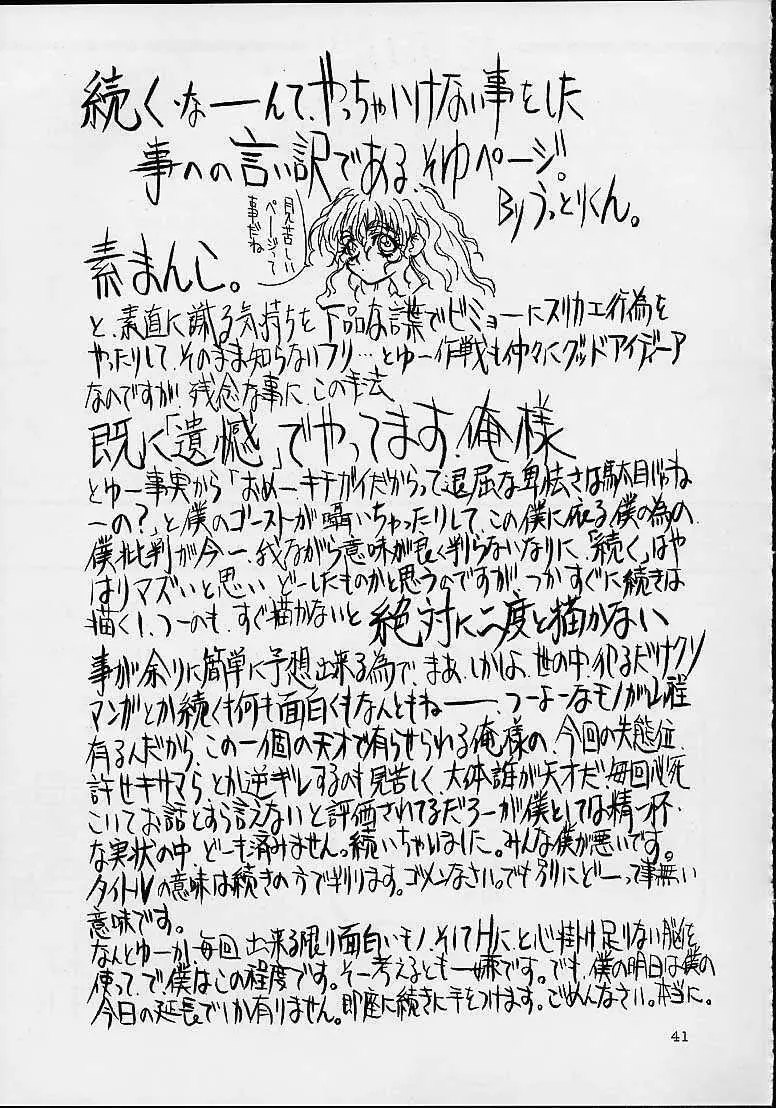 続く、なーんて、やっちゃいけない事をした
事への言い訳である、そゆページ。
Byうっとりくん。
見苦しい
ページって
事だね
素まんし。
と、素直に謝る気持ちを下品な言葉でビミョーにスリカエ行為を
やったりして、そのまま知らないフリ…とゆー作戦も仲々にグッドアイディーア
なのですが、残念な事に、この手法
既に「遺憾」でやってます、俺様
とゆー事実から「おめー、キチガイだからって退屈な卑怯さは駄目じゃね
ーの?」と僕のゴーストが囁いちゃったりして、この僕に依る僕の為の、
僕批判が今一、我ながら意味が良く判らないなりに、「続く」はや
はりマズいと思い、どーしたものかと思うのですが、つかすぐに続きは
描く!、つーのも、すぐ描かないと絶対に二度と描かない
事が余りに簡単に予想出来る為で、まあ、しかしよ、世の中、犯るだけクソ
マンガとか続くも何も面白くもなんともねーー、つーよーなモノが山程
有るんだから、この一個の天才で有らせられる俺様の、今回の失態位、
許せキサマら、とか逆ギレするのも見苦しく、大体誰が天才だ、毎回必死
こいてお話とすら言えないと評価されてるだろーが僕としては精一杯、
な実状の中、どーも済みませんっ続いちゃいました。みんな僕が悪いです。
タイトルの意味は続きの方で判ります。ゴメンなさい。でも別にどーって事無い
意味です。
なんとゆーか、毎回、出来る限り面白いモノ、そしてHに、と心掛け足りない脳を
使って、で、僕はこの程度です。そー考えるとも一嫌です。でも、僕の明日は僕の
今日の延長でしか有りません。即座に続きに手をつけます。ごめんなさい。本当に。
41